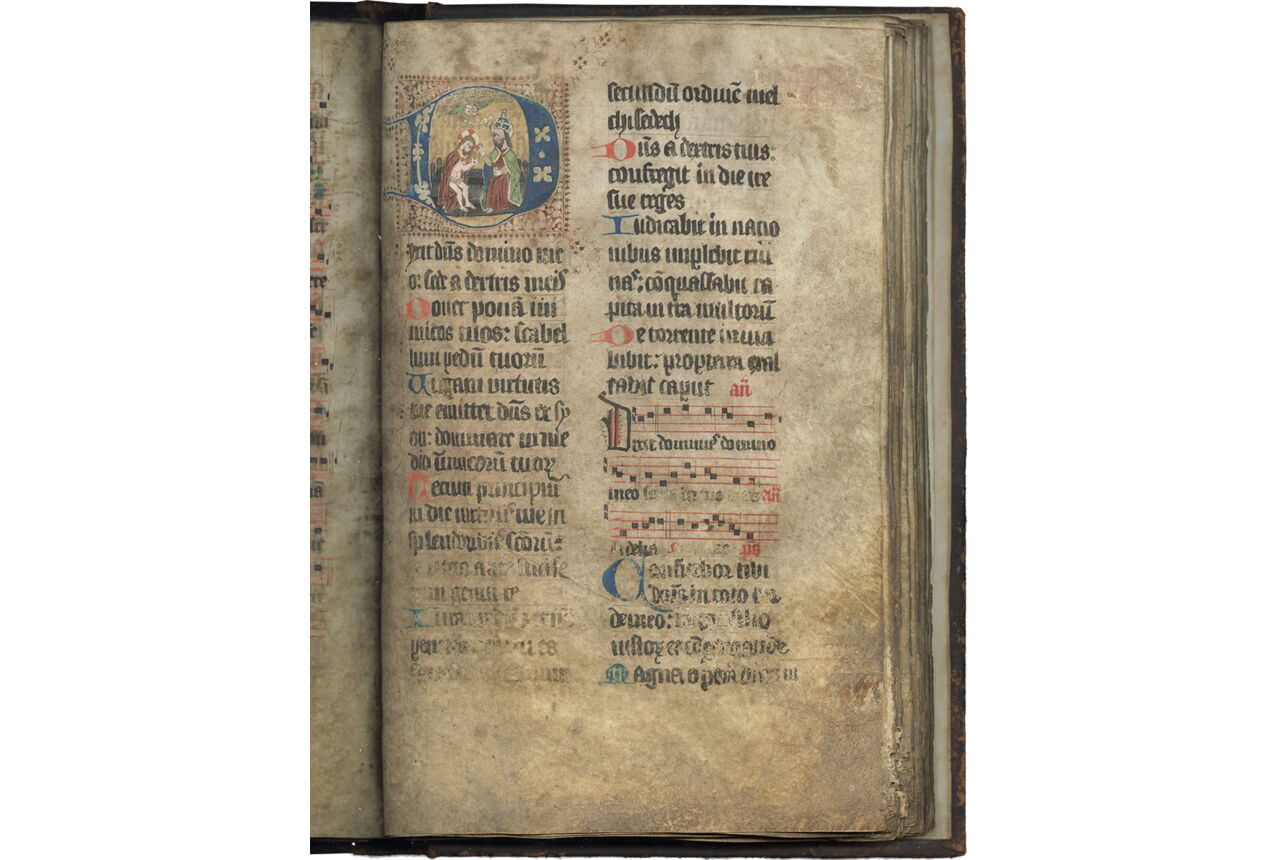 D
ixit dūs domino me
o: sede a dextris meis
Donec ponā ini
micos tuos: scabel
lum pedū tuorū
Uirgam virtutis
tue emittet dūs ex sy
on: dominare in me
dio inimicorū tuor
Tecum principiū
in die virtutis tue in
splendorib scōrū:
ante
genui te
secundū ordinē mel
chisedech
Dūs a dextris tuis:
confregit in die ire
sue reges
Iudicabit in natio
nibus implebit rui
nas: cōquassabit ca
pita in tra multorū
De torrente in uia
bibit: propterea exal
tabit caput an̄
Dixit dominus domino
meo an̄
Fidelia ps̄
Confitebor tibi
dn̄e in toto cor
de meo: in
iustor et cōgregacione
Magna opera